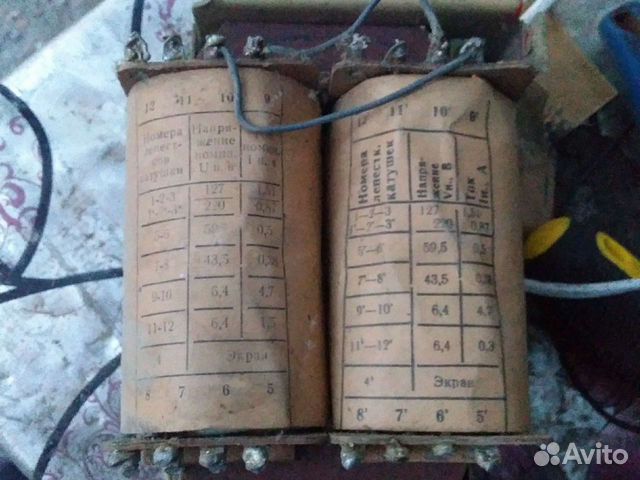 12 11 10 9
Номера лепест- ков катушки
Напря- жение номин. Uн, в
номин. Iн,
1-2-3 127
220 0,87
5-6 59,5 0,5
7-8 43,5 0,28
9-10 6,4 4,7
11-12 6,4
4 Экран
8 7 6 5
12' 11' 10' 9'
Номера лепестк. катушек
Напря- жение Vн., В
Ток Iн. А
1—2—3 127
1'—2'—3' 220 0,87
5'—6' 59,5 0,5
7'—8' 43,5 0,28
9'—10' 6,4 4,7
11'—12' 6,4 0,3
4' Экран
8' 7' 6' 5'
Avito